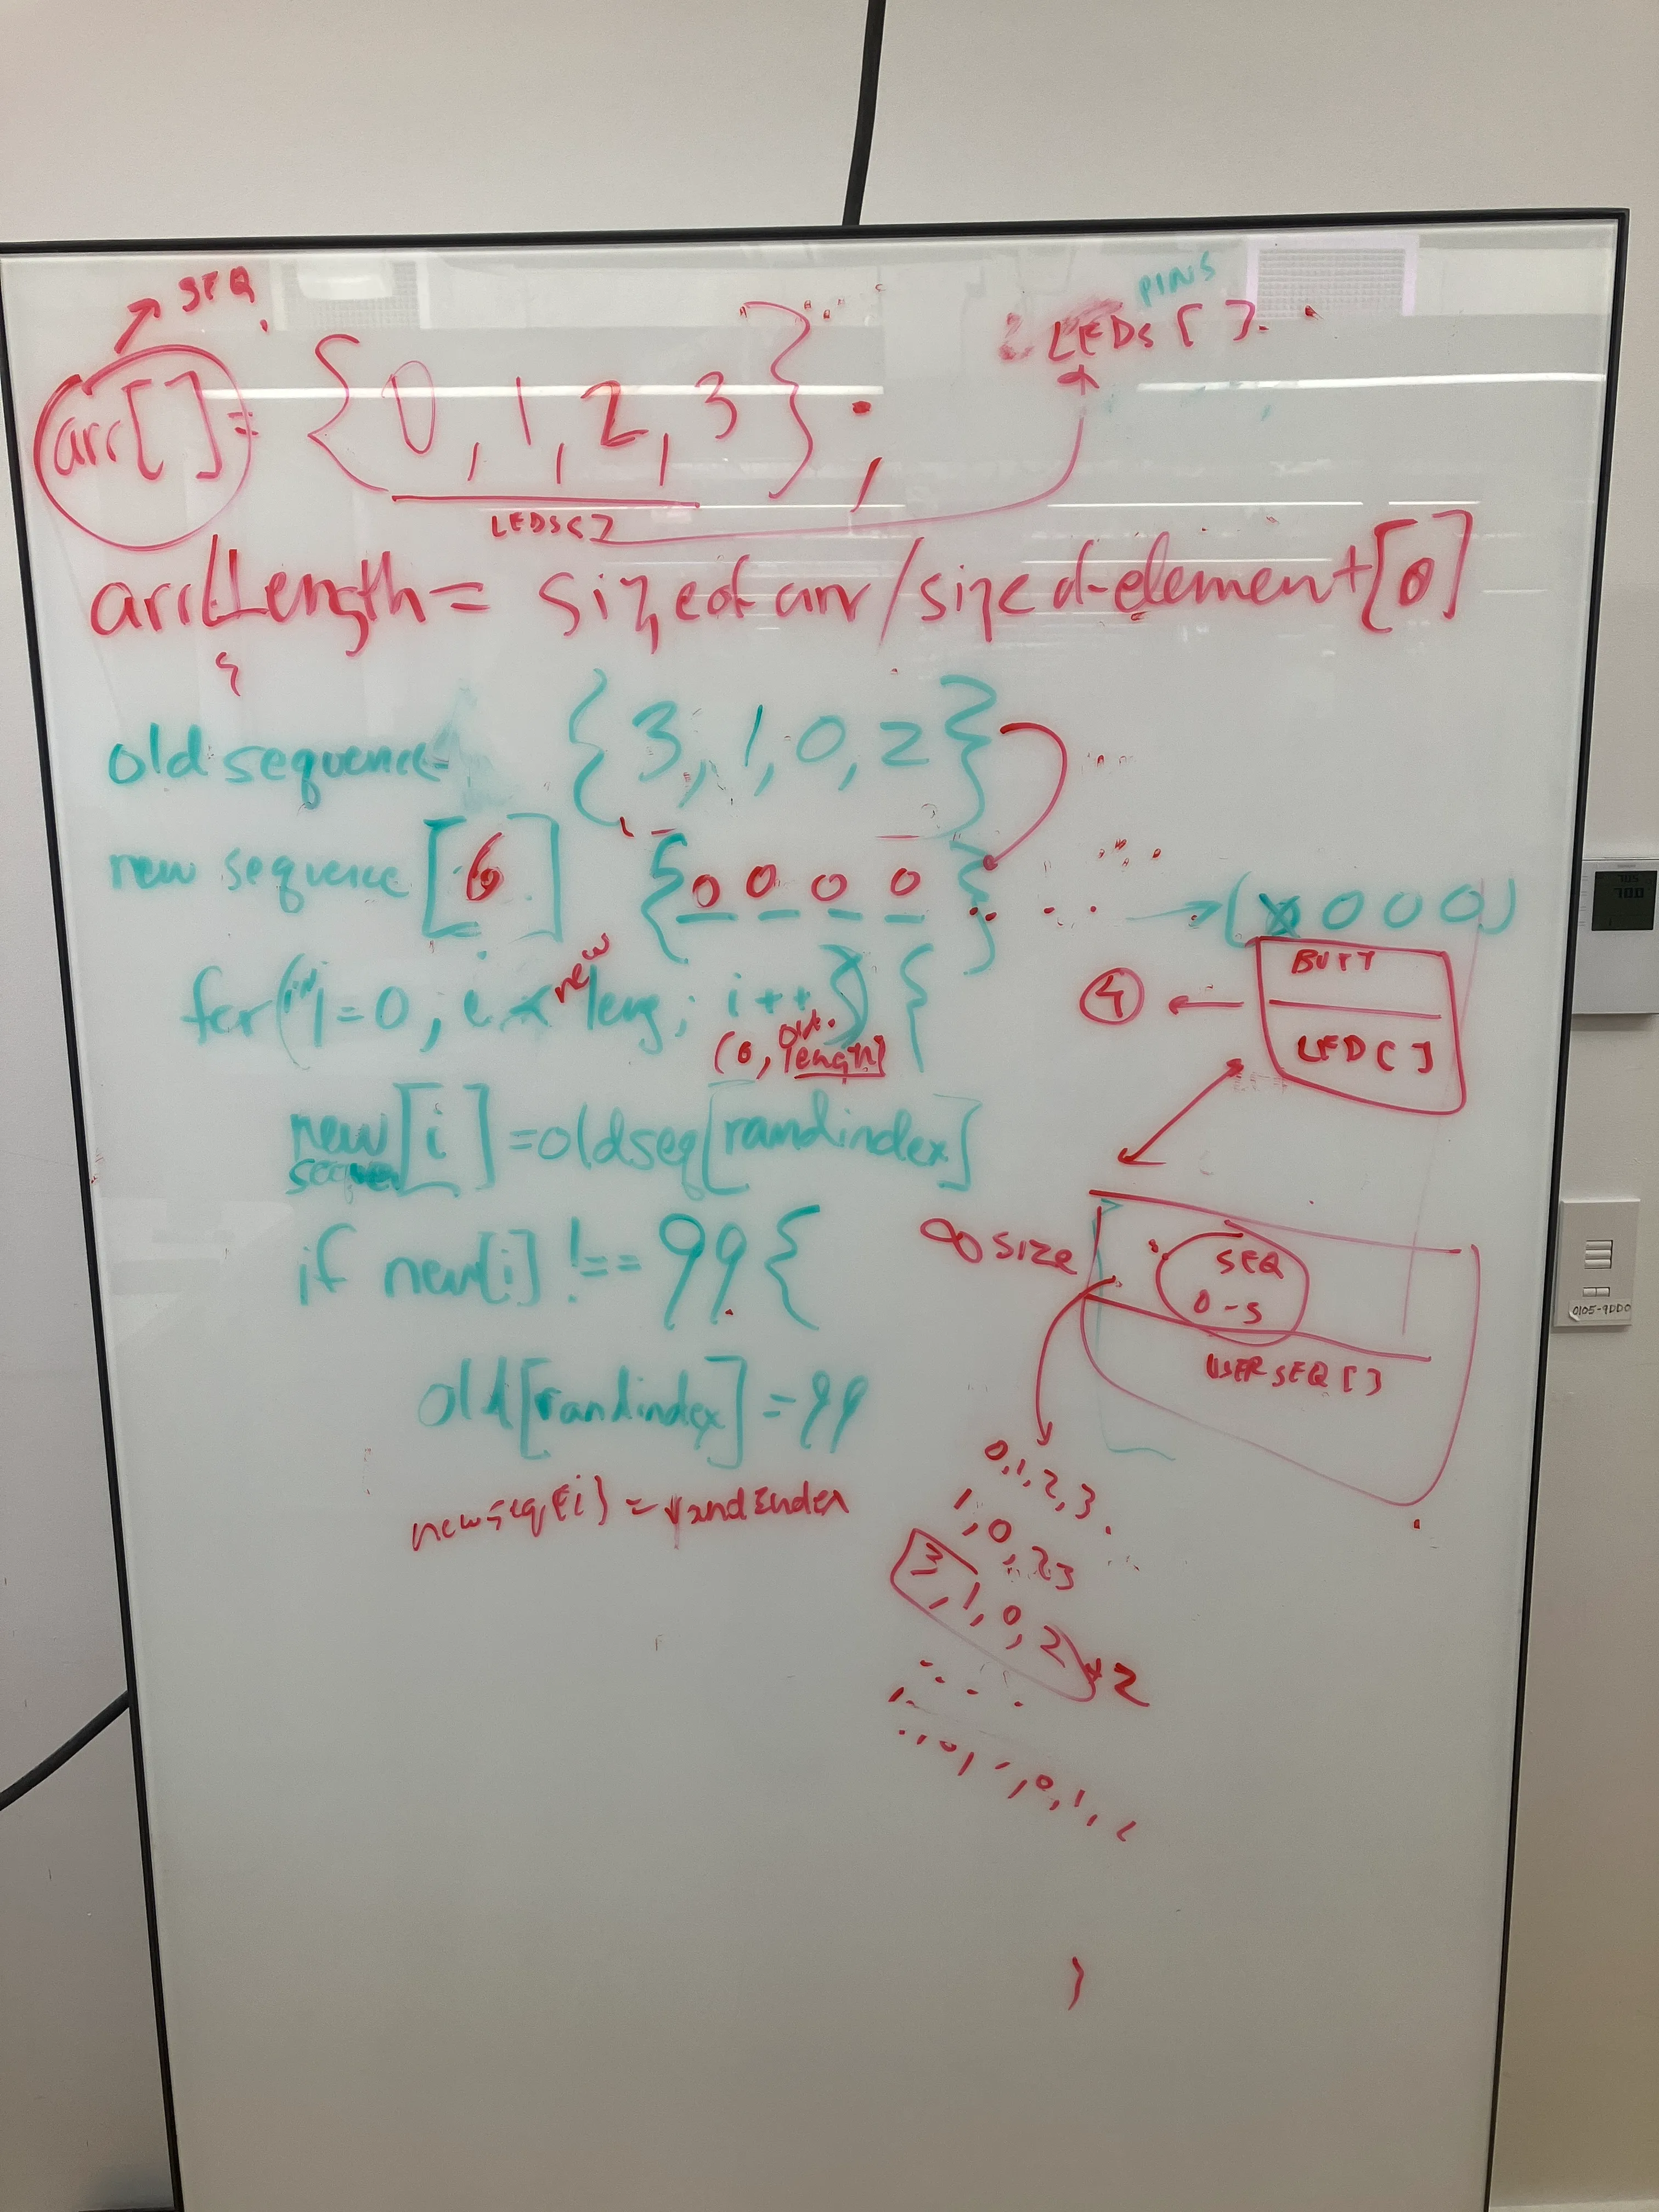 SEQ
PINS
LEDs [ ]
arr[ ] = { 0, 1, 2, 3 } ;
LEDS
arrLength = sizeof arr/sizeof element[0]
old sequence { 3, 1, 0, 2 }
new sequence [6] { 0 0 0 0 }
→ (X 0 0 0)
for(int i=0; i < new leng; i++) {
(0, old. length)
BUTT
4
LED [ ]
new sequen [i] = oldseq[randindex]
if new[i] !== 99 {
∞ SIZE
SEQ
0-5
USER SEQ [ ]
old[randindex] = 99
newseq[i] = randIndex
0,1,2,3
1,0,2 3
3,1,0,2
+2